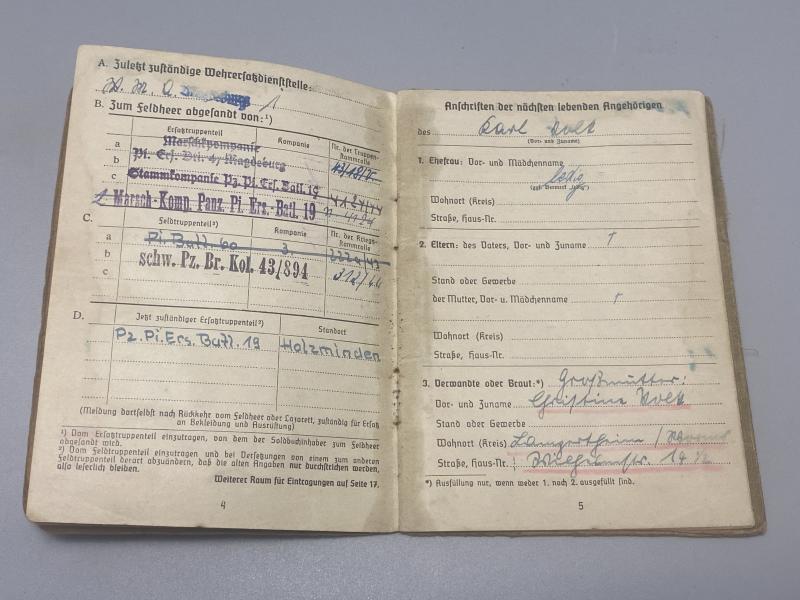 A. Zuletzt zuständige Wehrersatzdienststelle:
W. M. A. 1
B. Zum Feldheer abgesandt von:¹)
Ersatztruppenteil Kompanie Nr. der Truppen-
stammrolle
a Marschkompanie
b Pi. Ers. Btl. 4, Magdeburg
c Stammkompanie Pz. Pi. Ers. Batl. 19
2. Marsch-Komp. Panz. Pi. Ers.-Batl. 19
C. Feldtruppenteil²) Kompanie Nr. der Kriegs-
stammrolle
a Pi. Batl. 60 3.
b schw. Pz. Br. Kol. 43/894 312/44
c
D. Jetzt zuständiger Ersatztruppenteil²) Standort
Pz. Pi. Ers. Batl. 19 Holzminden
(Meldung dortselbst nach Rückkehr vom Feldheer oder Lazarett, zuständig für Ersatz
an Bekleidung und Ausrüstung)
¹) Vom Ersatztruppenteil einzutragen, von dem der Soldbuchinhaber zum Feldheer
abgesandt wird.
²) Vom Feldtruppenteil einzutragen und bei Versetzungen von einem zum anderen
Feldtruppenteil derart abzuändern, daß die alten Angaben nur durchstrichen werden,
also leserlich bleiben.
Weiterer Raum für Eintragungen auf Seite 17.
4
Anschriften der nächsten lebenden Angehörigen
des Karl Volk
(Vor- und Zuname)
1. Ehefrau: Vor- und Mädchenname
ledig
(ggf. Vermerk „ledig“)
Wohnort (Kreis)
Straße, Haus-Nr.
2. Eltern: des Vaters, Vor- und Zuname †
Stand oder Gewerbe
der Mutter, Vor- u. Mädchenname †
Wohnort (Kreis)
Straße, Haus-Nr.
3. Verwandte oder Braut:*) Großmutter:
Vor- und Zuname Christine Volk
Stand oder Gewerbe
Wohnort (Kreis) Lampertheim /
Straße, Haus-Nr.
*) Ausfüllung nur, wenn weder 1. noch 2. ausgefüllt sind.
5